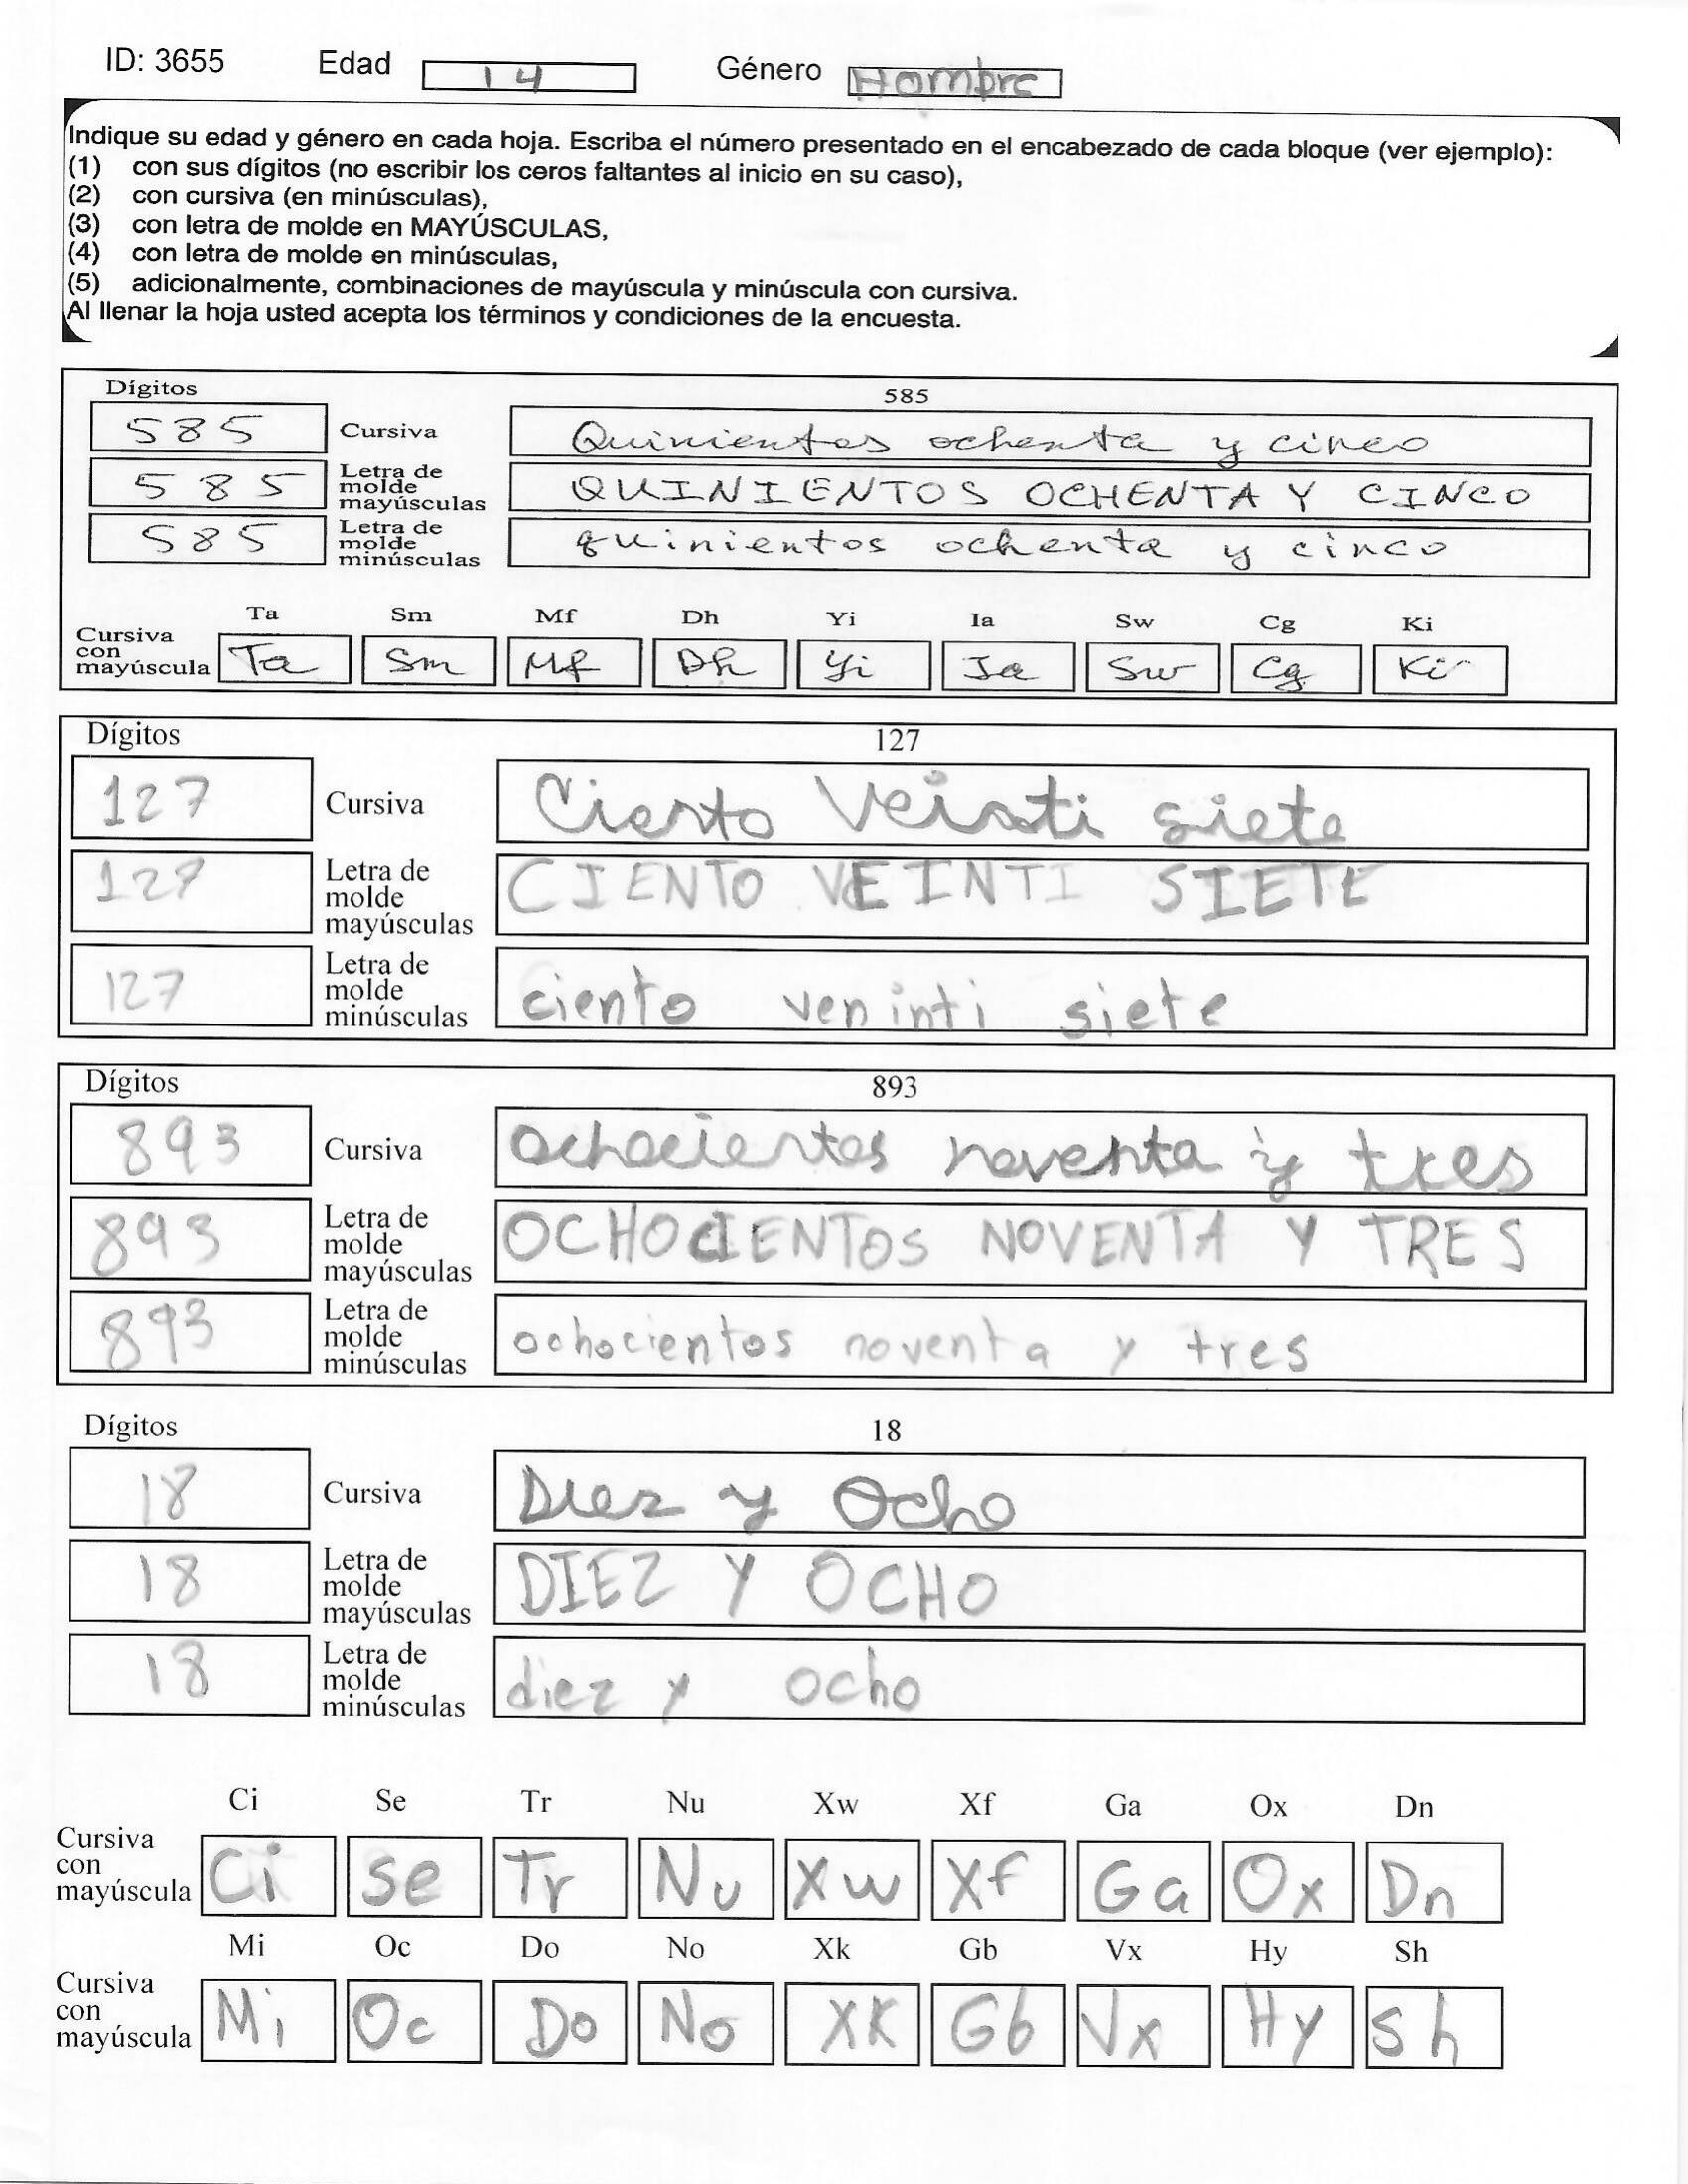 ID: 3655 Edad 14 Género Hombre
Indique su edad y género en cada hoja. Escriba el número presentado en el encabezado de cada bloque (ver ejemplo):
(1) con sus dígitos (no escribir los ceros faltantes al inicio en su caso),
(2) con cursiva (en minúsculas),
(3) con letra de molde en MAYÚSCULAS,
(4) con letra de molde en minúsculas,
(5) adicionalmente, combinaciones de mayúscula y minúscula con cursiva.
Al llenar la hoja usted acepta los términos y condiciones de la encuesta.
Dígitos 585
585 Cursiva Quinientos ochenta y cinco
585 Letra de molde mayúsculas QUINIENTOS OCHENTA Y CINCO
585 Letra de molde minúsculas quinientos ochenta y cinco
Ta Sm Mf Dh Yi Ia Sw Cg Ki
Cursiva con mayúscula Ta Sm Mf Dh Yi Ia Sw Cg Ki
Dígitos 127
127 Cursiva Ciento Veinti siete
127 Letra de molde mayúsculas CIENTO VEINTI SIETE
127 Letra de molde minúsculas ciento veninti siete
Dígitos 893
893 Cursiva ochocientos noventa y tres
893 Letra de molde mayúsculas OCHOCIENTOS NOVENTA Y TRES
893 Letra de molde minúsculas ochocientos noventa y tres
Dígitos 18
18 Cursiva Diez y Ocho
18 Letra de molde mayúsculas DIEZ Y OCHO
18 Letra de molde minúsculas diez y ocho
Ci Se Tr Nu Xw Xf Ga Ox Dn
Cursiva con mayúscula Ci Se Tr Nu Xw Xf Ga Ox Dn
Mi Oc Do No Xk Gb Vx Hy Sh
Cursiva con mayúscula Mi Oc Do No XK Gb Vx Hy Sh